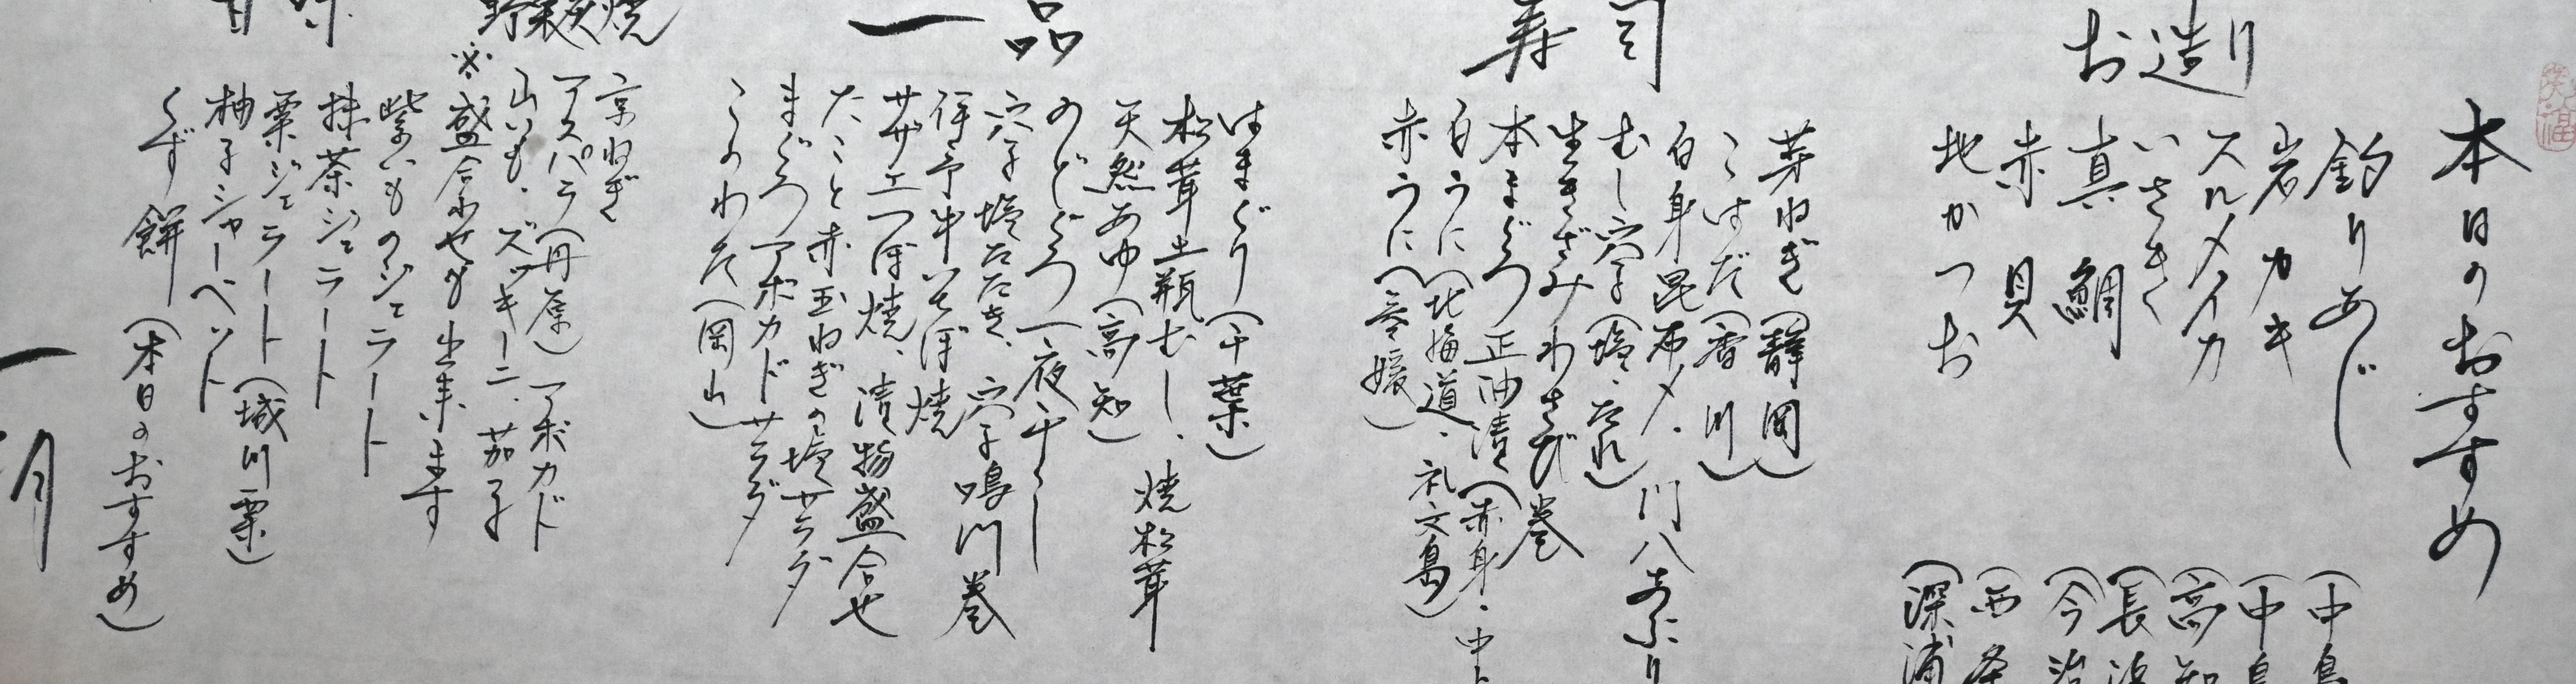 本日のおすすめ
お造り
釣りあじ（中島
岩カキ（中島
スルメイカ（高知
いさき（長浜
真鯛（今治
赤貝（西条
地かつお（深浦
寿司
芽ねぎ（静岡）
こはだ（香川）
白身昆布〆、川八あぶり
むし穴子（塩・たれ）
生きざみわさび巻
本まぐろ正油漬（赤身・中ト
白うに（北海道・礼文島）
赤うに（愛媛）
一品
はまぐり（千葉）
松茸土瓶むし、焼松茸
天然あゆ（高知）
のどぐろ一夜干し
穴子塩たたき、穴子鳴川巻
伊予牛いそぼ焼
サザエつぼ焼、漬物盛合せ
たこと赤玉ねぎの塩サラダ
まぐろアボカドサラダ
このわた（岡山）
野菜炙焼
京ねぎ
アスパラ（丹原）アボカド
山いも、ズッキーニ、茄子
※盛合わせも出来ます
甘味
紫いものジェラート
抹茶ジェラート
栗ジェラート（城川栗）
柚子シャーベット
くず餅（本日のおすすめ）